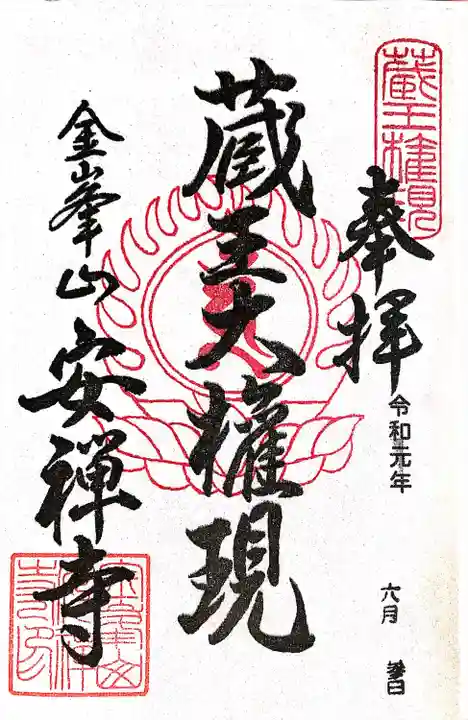 蔵王権現
奉拝
令和元年
六月
蔵王大権現
金峯山安禅寺